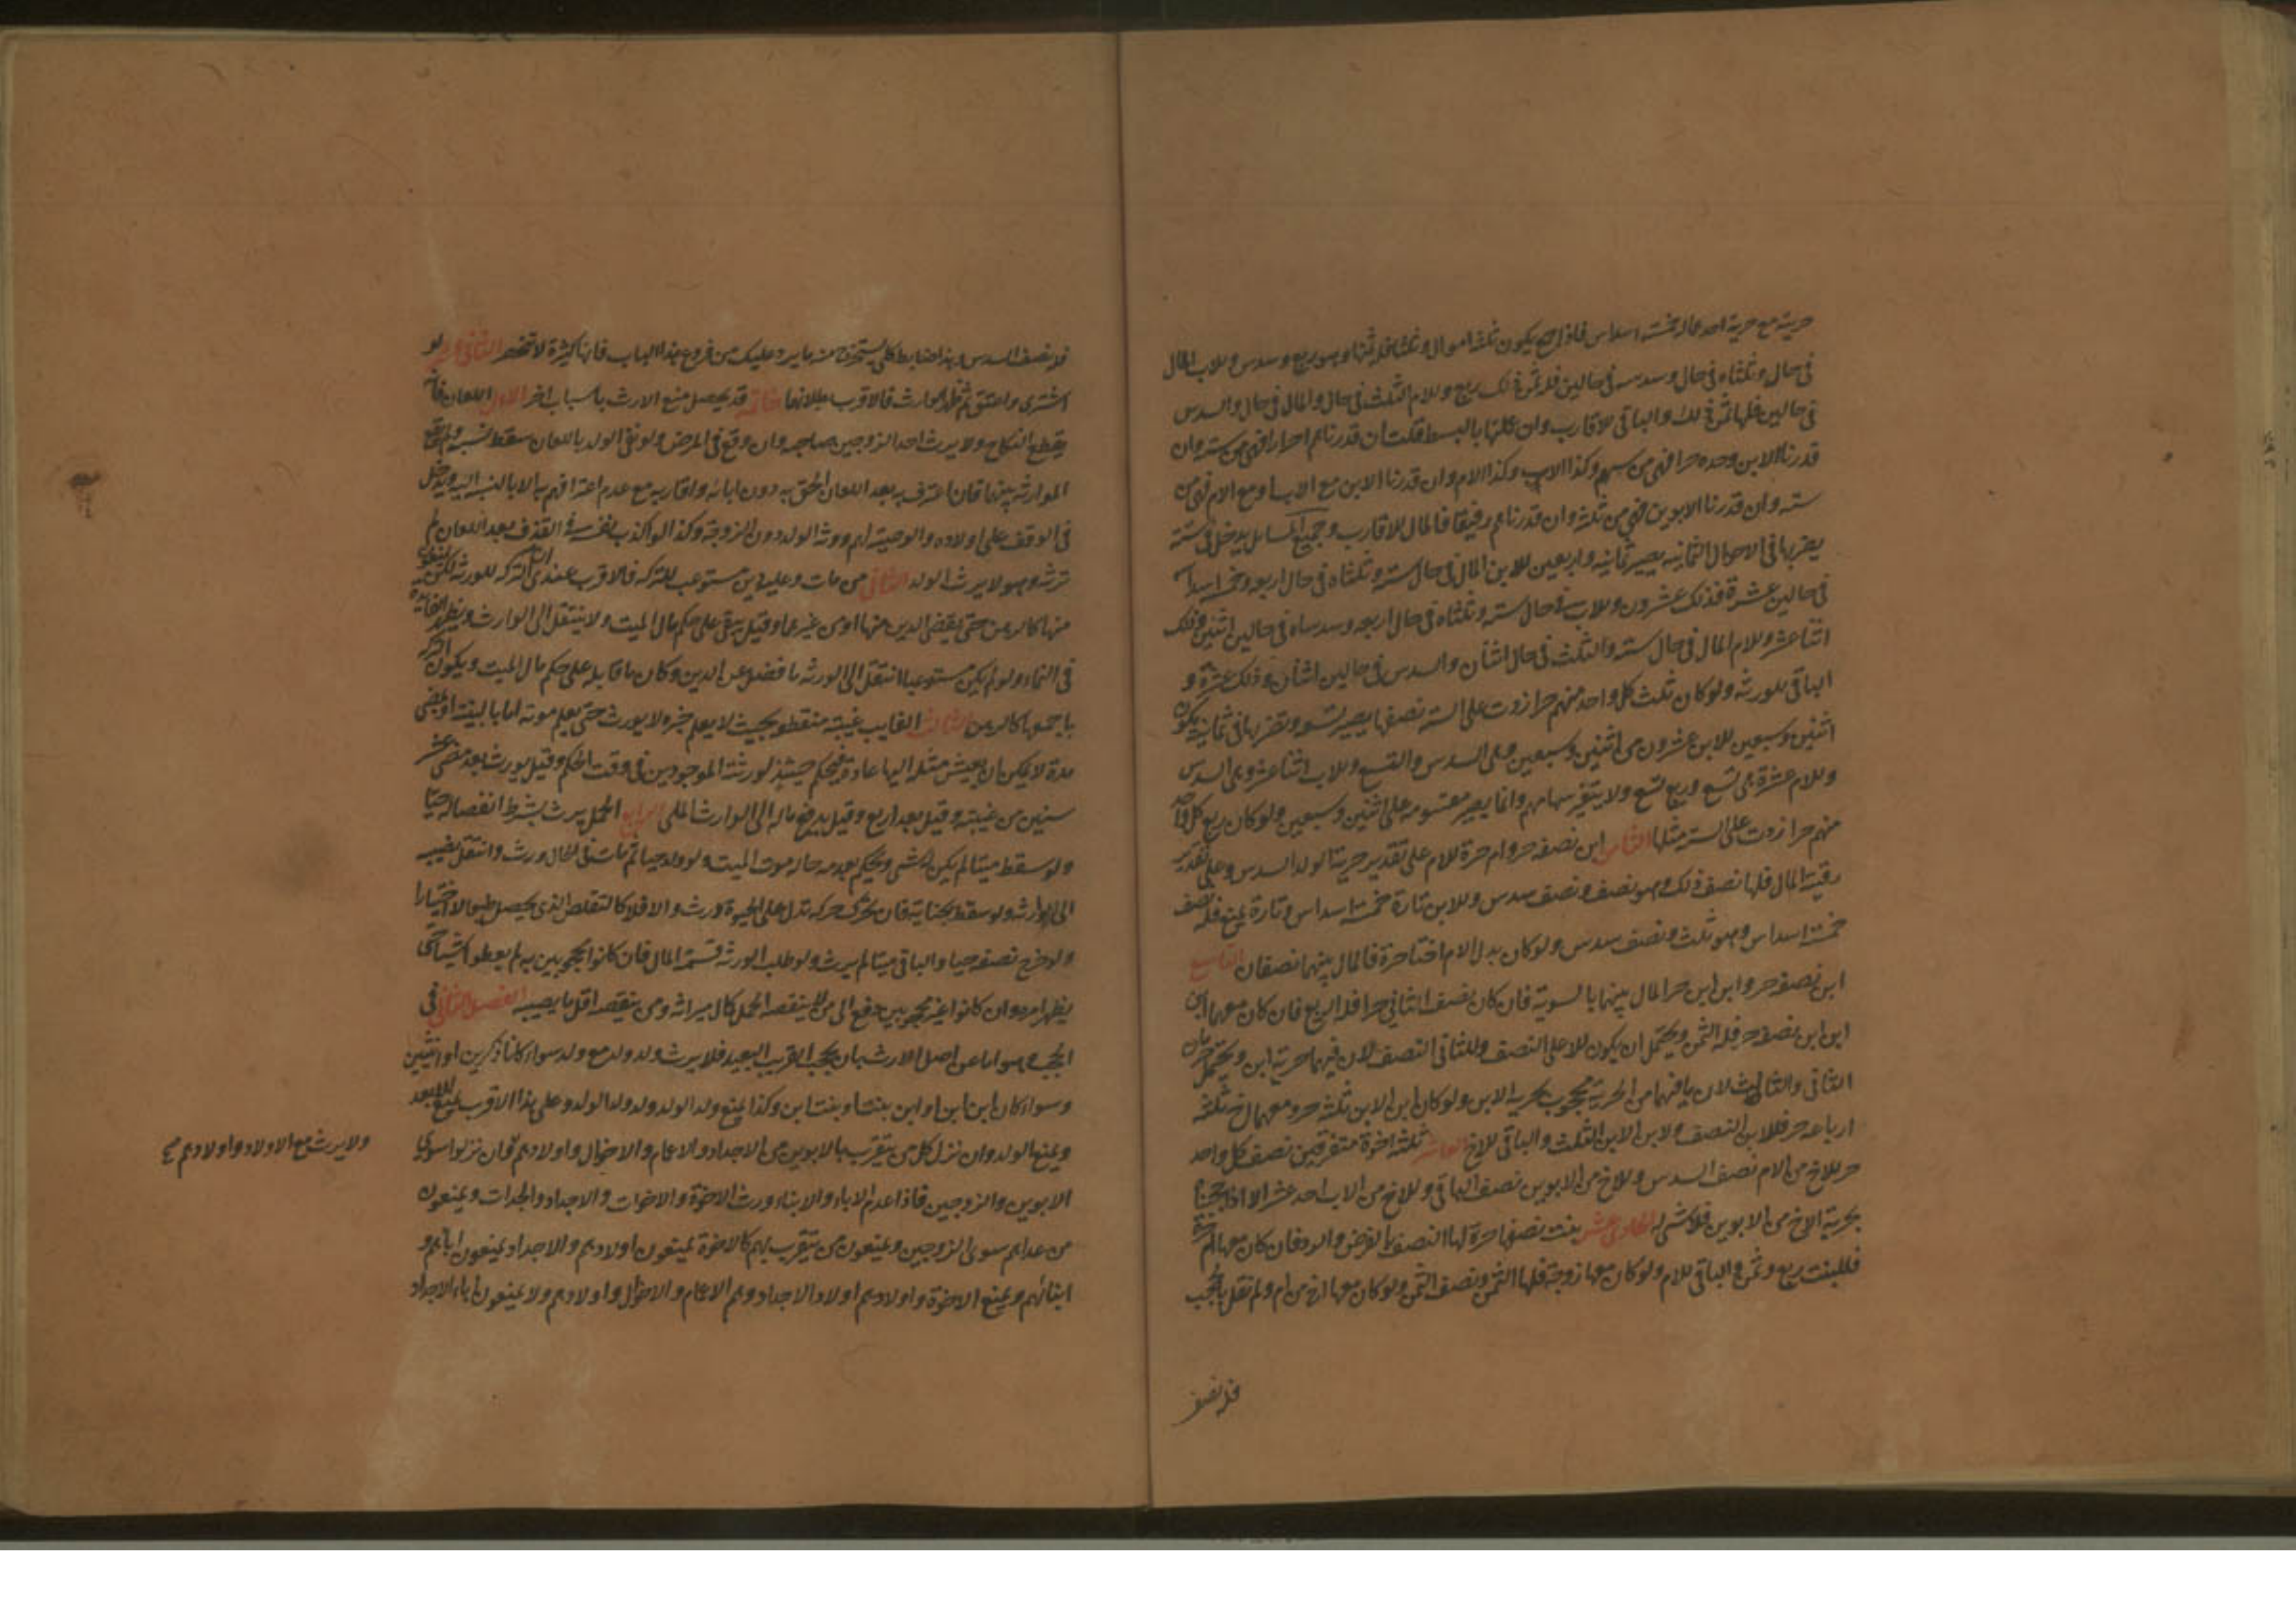 حرية مع حرية احد ماله خمسة اسداس فاذا يكون ثلثة اموال وثلثا فله ثمنها وهو ربع وسدس وللاب المال
في حال وثلثاه في حال وسدسه في حالين فله ثمن ذلك ربع وللام الثلث في حال والمال في حال والسدس
في حالين فلها ثمن ذلك والباقي للاقارب وان عملتها بالبسط قلت ان قدرناهم احرارا فهي من ستة وان
قدرنا الابن وحده حرا فهي من سهم وكذا الاب وكذا الام وان قدرنا الابن مع الاب او مع الام فهي من
ستة وان قدرنا الابوين فهي من ثلثة وان قدرناهم رقيقا فالمال للاقارب وجميع المسائل يدخل في ستة
يضربها في الاحوال الثمانية يصير ثمانية واربعين للابن المال في حال ستة وثلثاه في حال اربعة وخمسة اسداسه
في حالين عشرة فذلك عشرون وللاب في حال ستة وثلثاه في حال اربعة وسدساه في حالين اثنين فذلك
اثنا عشر وللام المال في حال ستة والثلث في حال اثنان والسدس في حالين اثنان وذلك عشرة و
الباقي للورثة ولو كان ثلث كل واحد منهم حرا زدت على الستة نصفها يصير تسعة وتضربها في ثمانية يكون
اثنين وسبعين للابن عشرون من اثنين وسبعين وهي السدس والتسع وللاب اثنا عشر وهي السدس
وللام عشرة هي تسع وربع تسع ولا يتغير سهامهم وانما يصير مقسومة على اثنين وسبعين ولو كان ربع كل واحد
منهم حرا زدت على الستة مثلها الثامن ابن نصفه حر وام حرة للام على تقدير حرية الولد السدس وعلى تقدير
رقيته المال فلها نصف ذلك وهو نصف ونصف سدس وللابن تارة خمسة اسداس وتارة يمنع فله نصف
خمسة اسداس وهو ثلث ونصف سدس ولو كان بدل الام اختا حرة فالمال بينهما نصفان التاسع
ابن نصفه حر وابن ابن حر المال بينهما بالسوية فان كان نصف الثاني حرا فله الربع فان كان معهما ابن
ابن ابن نصفه حر فله الثمن ويحتمل ان يكون للاعلى النصف وللثاني النصف لان فيهما حرية ابن ويحتمل حرمان
الثاني والثالث لان ما فيهما من الحرية محجوب بحرية الابن ولو كان ابن الابن ثلثه حر ومعهما اخ ثلثة
ارباعه حر فللابن النصف ولابن الابن الثلث والباقي للاخ العاشر ثلثة اخوة متفرقين نصف كل واحد
حر للاخ من الام نصف السدس وللاخ من الابوين نصف الباقي وللاخ من الاب احد عشر الا اذا حجبنا
بحرية الاخ من الابوين فلا شيء له الحادي عشر بنت نصفها حرة لها النصف بالفرض والرد فان كان معها ام حرة
فللبنت ربع وثمن والباقي للام ولو كان معها زوجة فلها الثمن ونصف الثمن ولو كان معها اخ من ام ولم نقل بالحجب
فله نصف
فله نصف السدس وهذا ضابط كلي يستخرج منه ما يرد عليك من فروع هذا الباب فانها كثيرة لا تنحصر الثاني عشر لو
اشترى واعتق ثم ظهر الوارث فالاقرب بطلانها خاتمة قد يحصل منع الارث باسباب اخر الاول اللعان فانه
يقطع النكاح ولا يرث احد الزوجين صاحبه وان وقع في المرض ولو نفى الولد باللعان سقط نسبه ولم يقع
الموارثة بينهما فان اعترف به بعد اللعان الحق به دون ابائه واقاربه مع عدم اعترافهم به الا بالنسبة اليه ويدخل
في الوقف على اولاده والوصية لهم وورثه الولد دون الزوجة وكذا لو اكذب نفسه في القذف بعد اللعان لم
ترثه وهو لا يرث الولد الثاني من مات وعليه دين مستوعب للتركة فالاقرب عندي ان التركة للورثة لكن يمنعون
منها كالرهن حتى يقضى الدين منها او من غيرها وقيل يبقى على حكم مال الميت ولا ينتقل الى الوارث ويظهر الفائدة
في النماء ولو لم يكن مستوعبا انتقل الى الورثة ما فضل عن الدين وكان ما قابله على حكم مال الميت ويكون التركة
باجمعها كالرهن الثالث الغايب غيبة منقطعة بحيث لا يعلم خبره لا يورث حتى يعلم موته اما بالبينة او بمضي
مدة لا يمكن ان يعيش مثله اليها عادة فيحكم حينئذ لورثته الموجودين في وقت الحكم وقيل يورث بعد مضي عشر
سنين من غيبته وقيل بعد اربع وقيل يدفع ماله الى الوارث الملي الرابع الحمل يرث بشرط انفصاله حيا
ولو سقط ميتا لم يكن له شيء ويحكم بعدمه حال موت الميت ولو ولد حيا ثم مات في الحال ورث وانتقل نصيبه
الى وارثه ولو سقط بجناية فان تحرك حركة تدل على الحيوة ورث والا فلا كالتقلص الذي يحصل طبعا لا اختيارا
ولو خرج نصفه حيا والباقي ميتا لم يرث ولو طلب الورثة قسمة المال فان كانوا محجوبين به لم يعطوا شيئا حتى
يظهر امره وان كانوا غير محجوبين دفع الى من لا ينقصه الحمل كمال ميراثه ومن ينقصه اقل ما يصيبه الفصل الثاني في
الحجب وهو اما عن اصل الارث بان يحجب القريب البعيد فلا يرث ولد ولد مع ولد سواء كانا ذكرين او انثيين
وسواء كان ابن ابن او ابن بنت او بنت ابن وكذا يمنع ولد الولد ولد ولد الولد وعلى هذا الاقرب يمنع الابعد
ويمنع الولد وان نزل كل من يتقرب بالابوين من الاجداد والاعمام والاخوال واولادهم وان نزلوا سوى
الابوين والزوجين فاذا عدم الاباء والابناء ورث الاخوة والاخوات والاجداد والجدات ويمنعون
من عداهم سوى الزوجين ويمنعون من يتقرب بهم كالاخوة يمنعون اولادهم والاجداد يمنعون اباءهم و
ابنائهم ويمنع الاخوة واولادهم اولاد الاجداد وهم الاعمام والاخوال واولادهم ولا يمنعون اباء الاجداد
ولا يرث مع الاولاد واولادهم